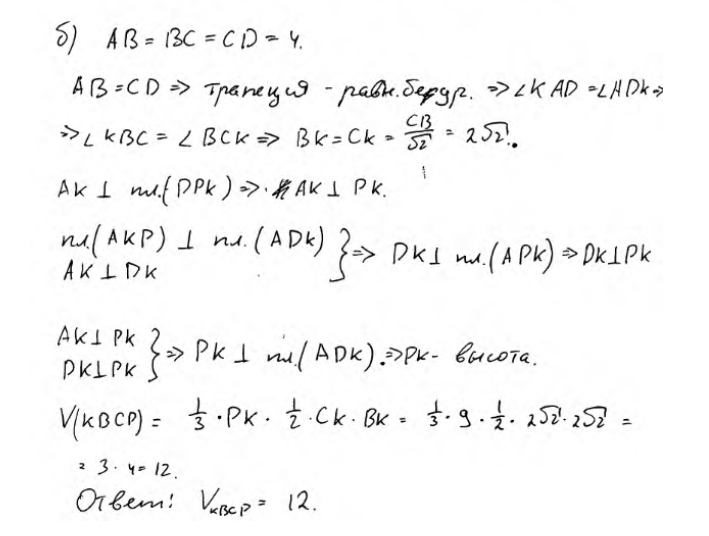 б) AB = BC = CD = 4.
AB = CD => трапеция - равн.бедр. => ∠KAD = ∠ADK =>
=> ∠KBC = ∠BCK => BK = CK = CB/√2 = 2√2.
AK ⊥ пл.(DPK) => AK ⊥ PK.
пл.(AKP) ⊥ пл.(ADK)
AK ⊥ DK } => DK ⊥ пл.(APK) => DK ⊥ PK
AK ⊥ PK
DK ⊥ PK } => PK ⊥ пл.(ADK). => PK - высота.
V(KBCP) = 1/3 · PK · 1/2 · CK · BK = 1/3 · 9 · 1/2 · 2√2 · 2√2 =
= 3 · 4 = 12.
Ответ: V_KBCP = 12.